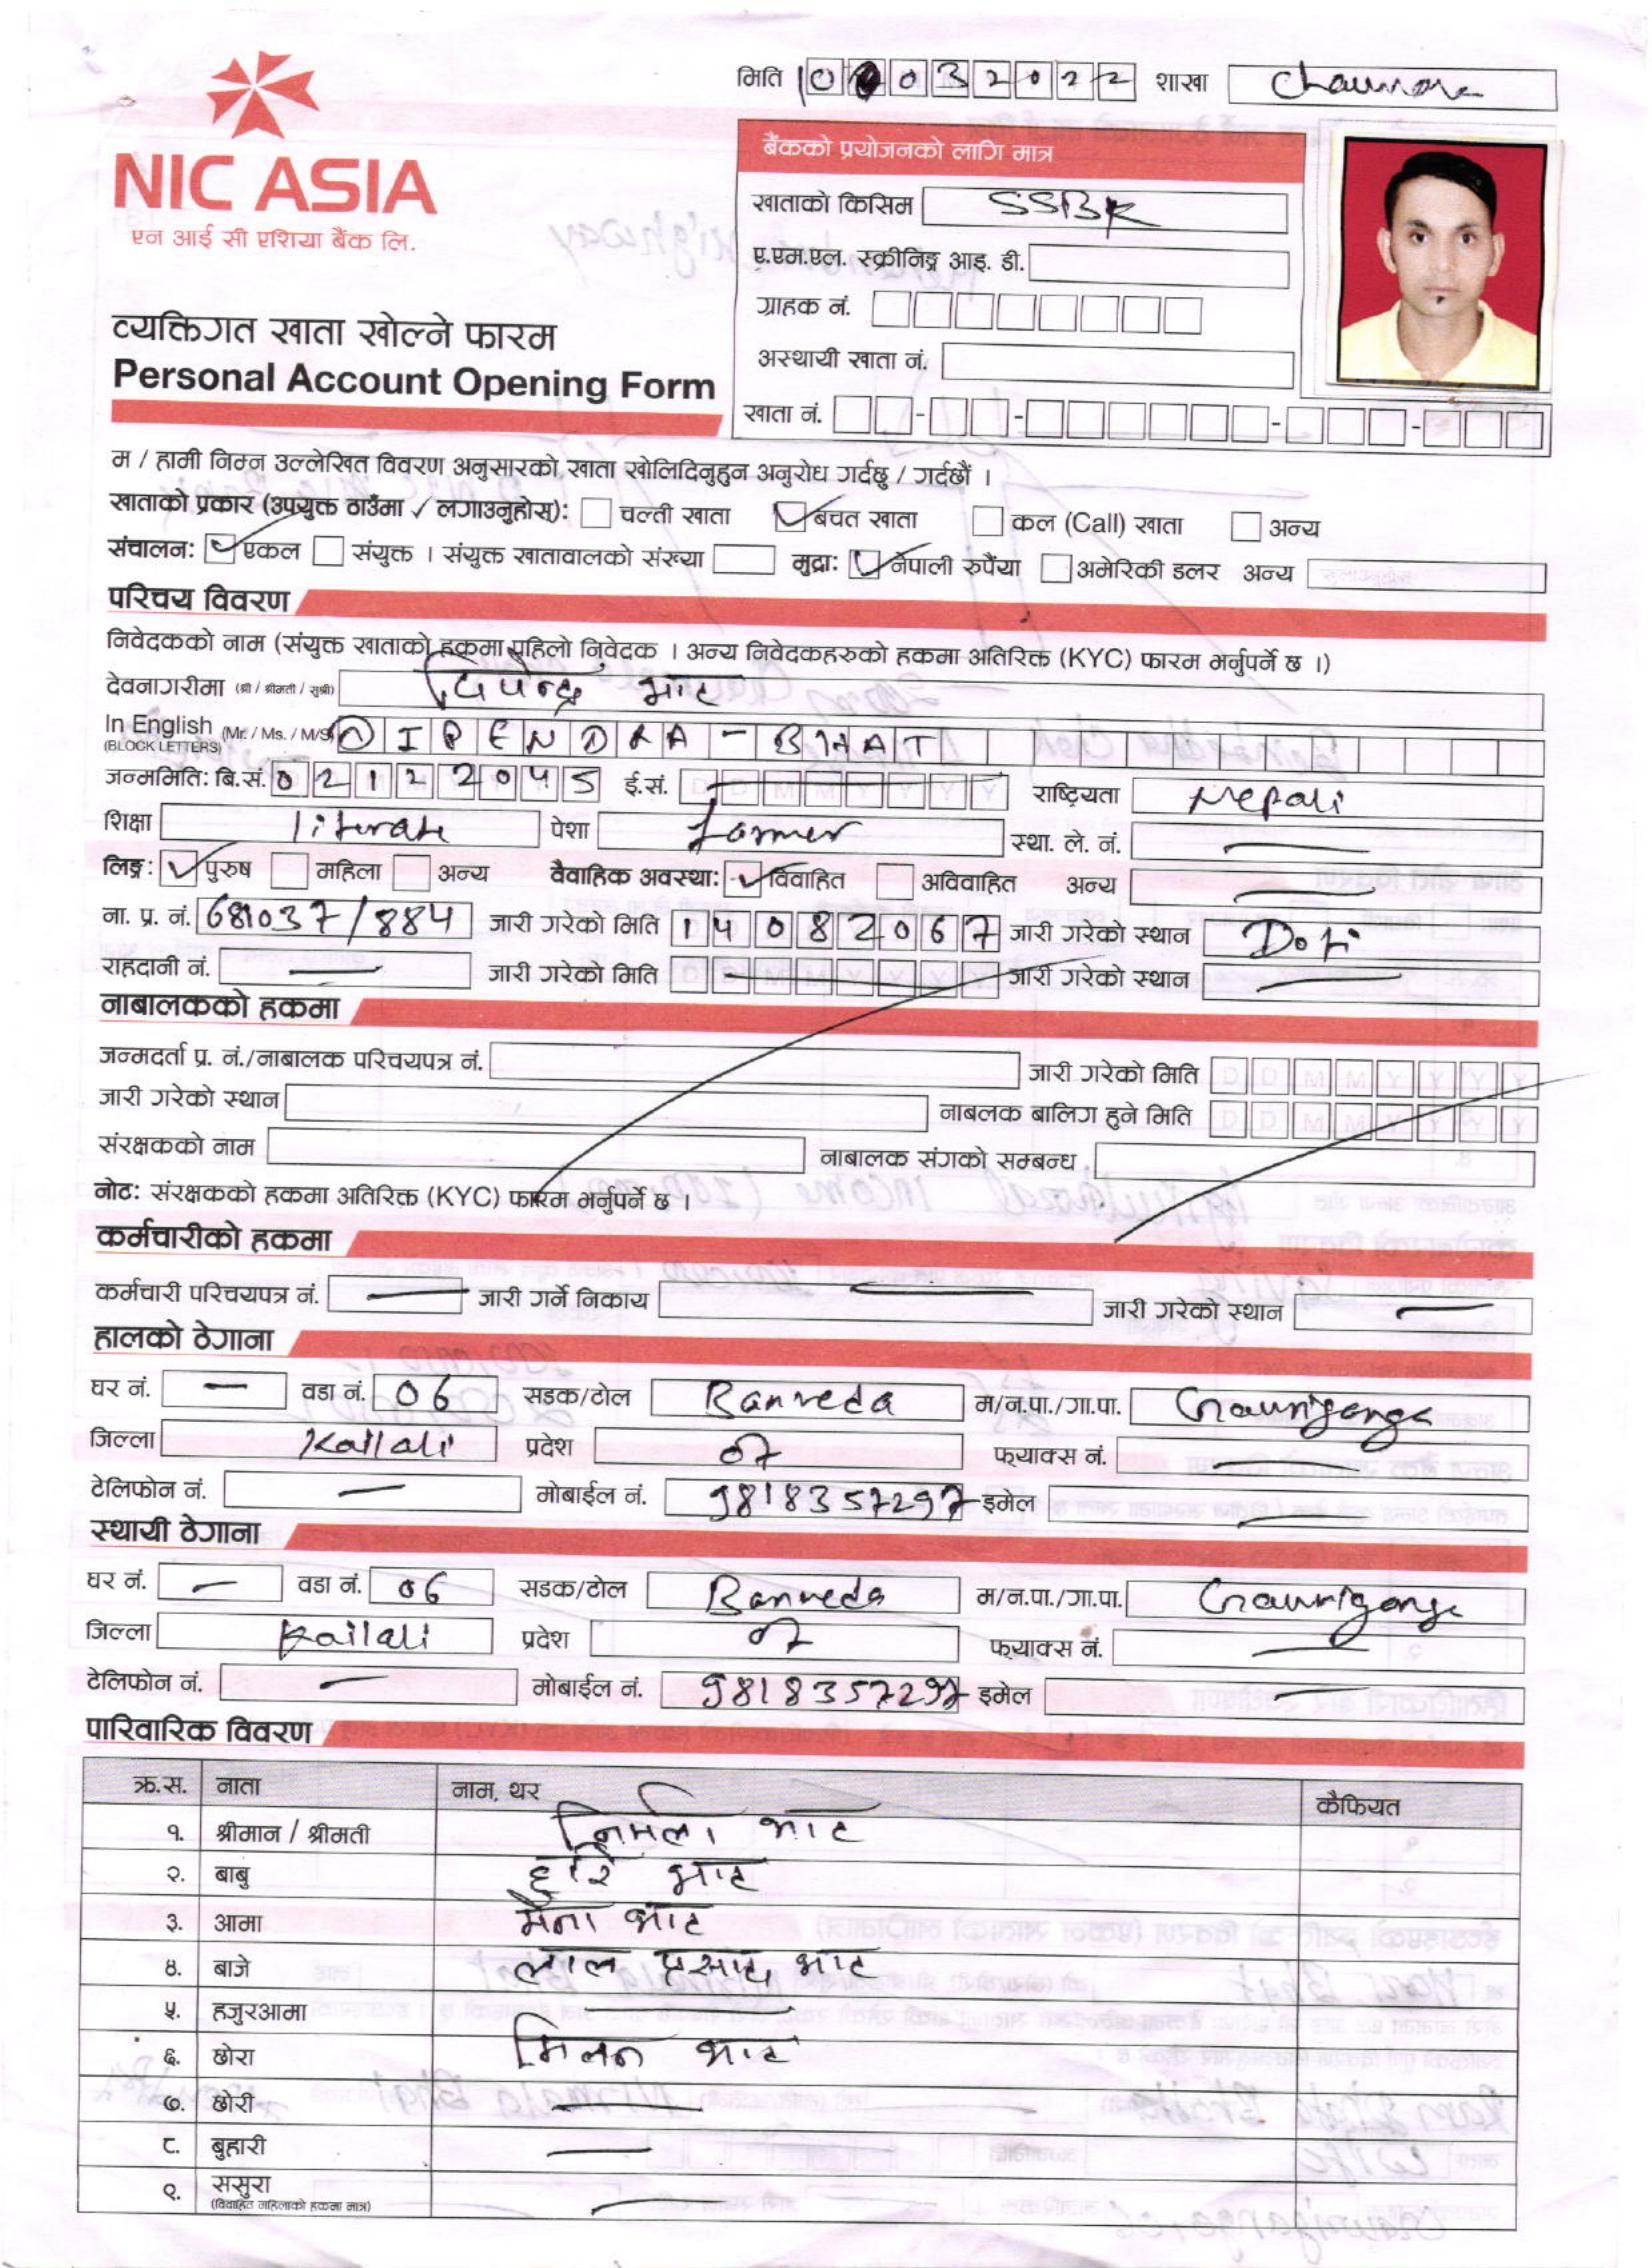 मिति 10032022 शाखा Chaumala
NIC ASIA
एन आई सी एशिया बैंक लि.
बैंकको प्रयोजनको लागि मात्र
खाताको किसिम SSBK
ए.एम.एल. स्क्रीनिङ्ग आइ. डी.
ग्राहक नं.
अस्थायी खाता नं.
खाता नं.
व्यक्तिगत खाता खोल्ने फारम
Personal Account Opening Form
म / हामी निम्न उल्लेखित विवरण अनुसारको खाता खोलिदिनुहुन अनुरोध गर्दछु / गर्दछौं ।
खाताको प्रकार (उपयुक्त ठाउँमा ✓ लगाउनुहोस्): चल्ती खाता ✓ बचत खाता कल (Call) खाता अन्य
संचालन: ✓ एकल संयुक्त । संयुक्त खातावालको संख्या मुद्रा: ✓ नेपाली रुपैंया अमेरिकी डलर अन्य
परिचय विवरण
निवेदकको नाम (संयुक्त खाताको हकमा पहिलो निवेदक । अन्य निवेदकहरुको हकमा अतिरिक्त (KYC) फारम भर्नुपर्ने छ ।)
देवनागरीमा (श्री / श्रीमती / सुश्री) दिपेन्द्र भाट
In English (Mr. / Ms. / M/S) DIPENDRA - BHAT
(BLOCK LETTERS)
जन्ममिति: बि.सं. 02122045 ई.सं. राष्ट्रियता Nepali
शिक्षा literate पेशा farmer स्था. ले. नं. —
लिङ्ग: ✓ पुरुष महिला अन्य वैवाहिक अवस्था: ✓ विवाहित अविवाहित अन्य —
ना. प्र. नं. 681037/884 जारी गरेको मिति 14082067 जारी गरेको स्थान Doti
राहदानी नं. — जारी गरेको मिति — जारी गरेको स्थान —
नाबालकको हकमा
जन्मदर्ता प्र. नं./नाबालक परिचयपत्र नं. जारी गरेको मिति
जारी गरेको स्थान नाबलक बालिग हुने मिति
संरक्षकको नाम नाबालक संगको सम्बन्ध
नोट: संरक्षकको हकमा अतिरिक्त (KYC) फारम भर्नुपर्ने छ ।
कर्मचारीको हकमा
कर्मचारी परिचयपत्र नं. — जारी गर्ने निकाय — जारी गरेको स्थान —
हालको ठेगाना
घर नं. — वडा नं. 06 सडक/टोल Banveda म/न.पा./गा.पा. Gauriganga
जिल्ला Kailali प्रदेश 07 फ्याक्स नं. —
टेलिफोन नं. — मोबाईल नं. 9818357297 इमेल —
स्थायी ठेगाना
घर नं. — वडा नं. 06 सडक/टोल Banveda म/न.पा./गा.पा. Gauriganga
जिल्ला Kailali प्रदेश 07 फ्याक्स नं. —
टेलिफोन नं. — मोबाईल नं. 9818357297 इमेल —
पारिवारिक विवरण
क्र.स. नाता नाम, थर कैफियत
१. श्रीमान / श्रीमती निर्मला भाट
२. बाबु हरि भाट
३. आमा मैना भाट
४. बाजे लाल प्रसाद भाट
५. हजुरआमा —
६. छोरा मिलन भाट
७. छोरी —
८. बुहारी —
९. ससुरा —
(विवाहित महिलाको हकमा मात्र)